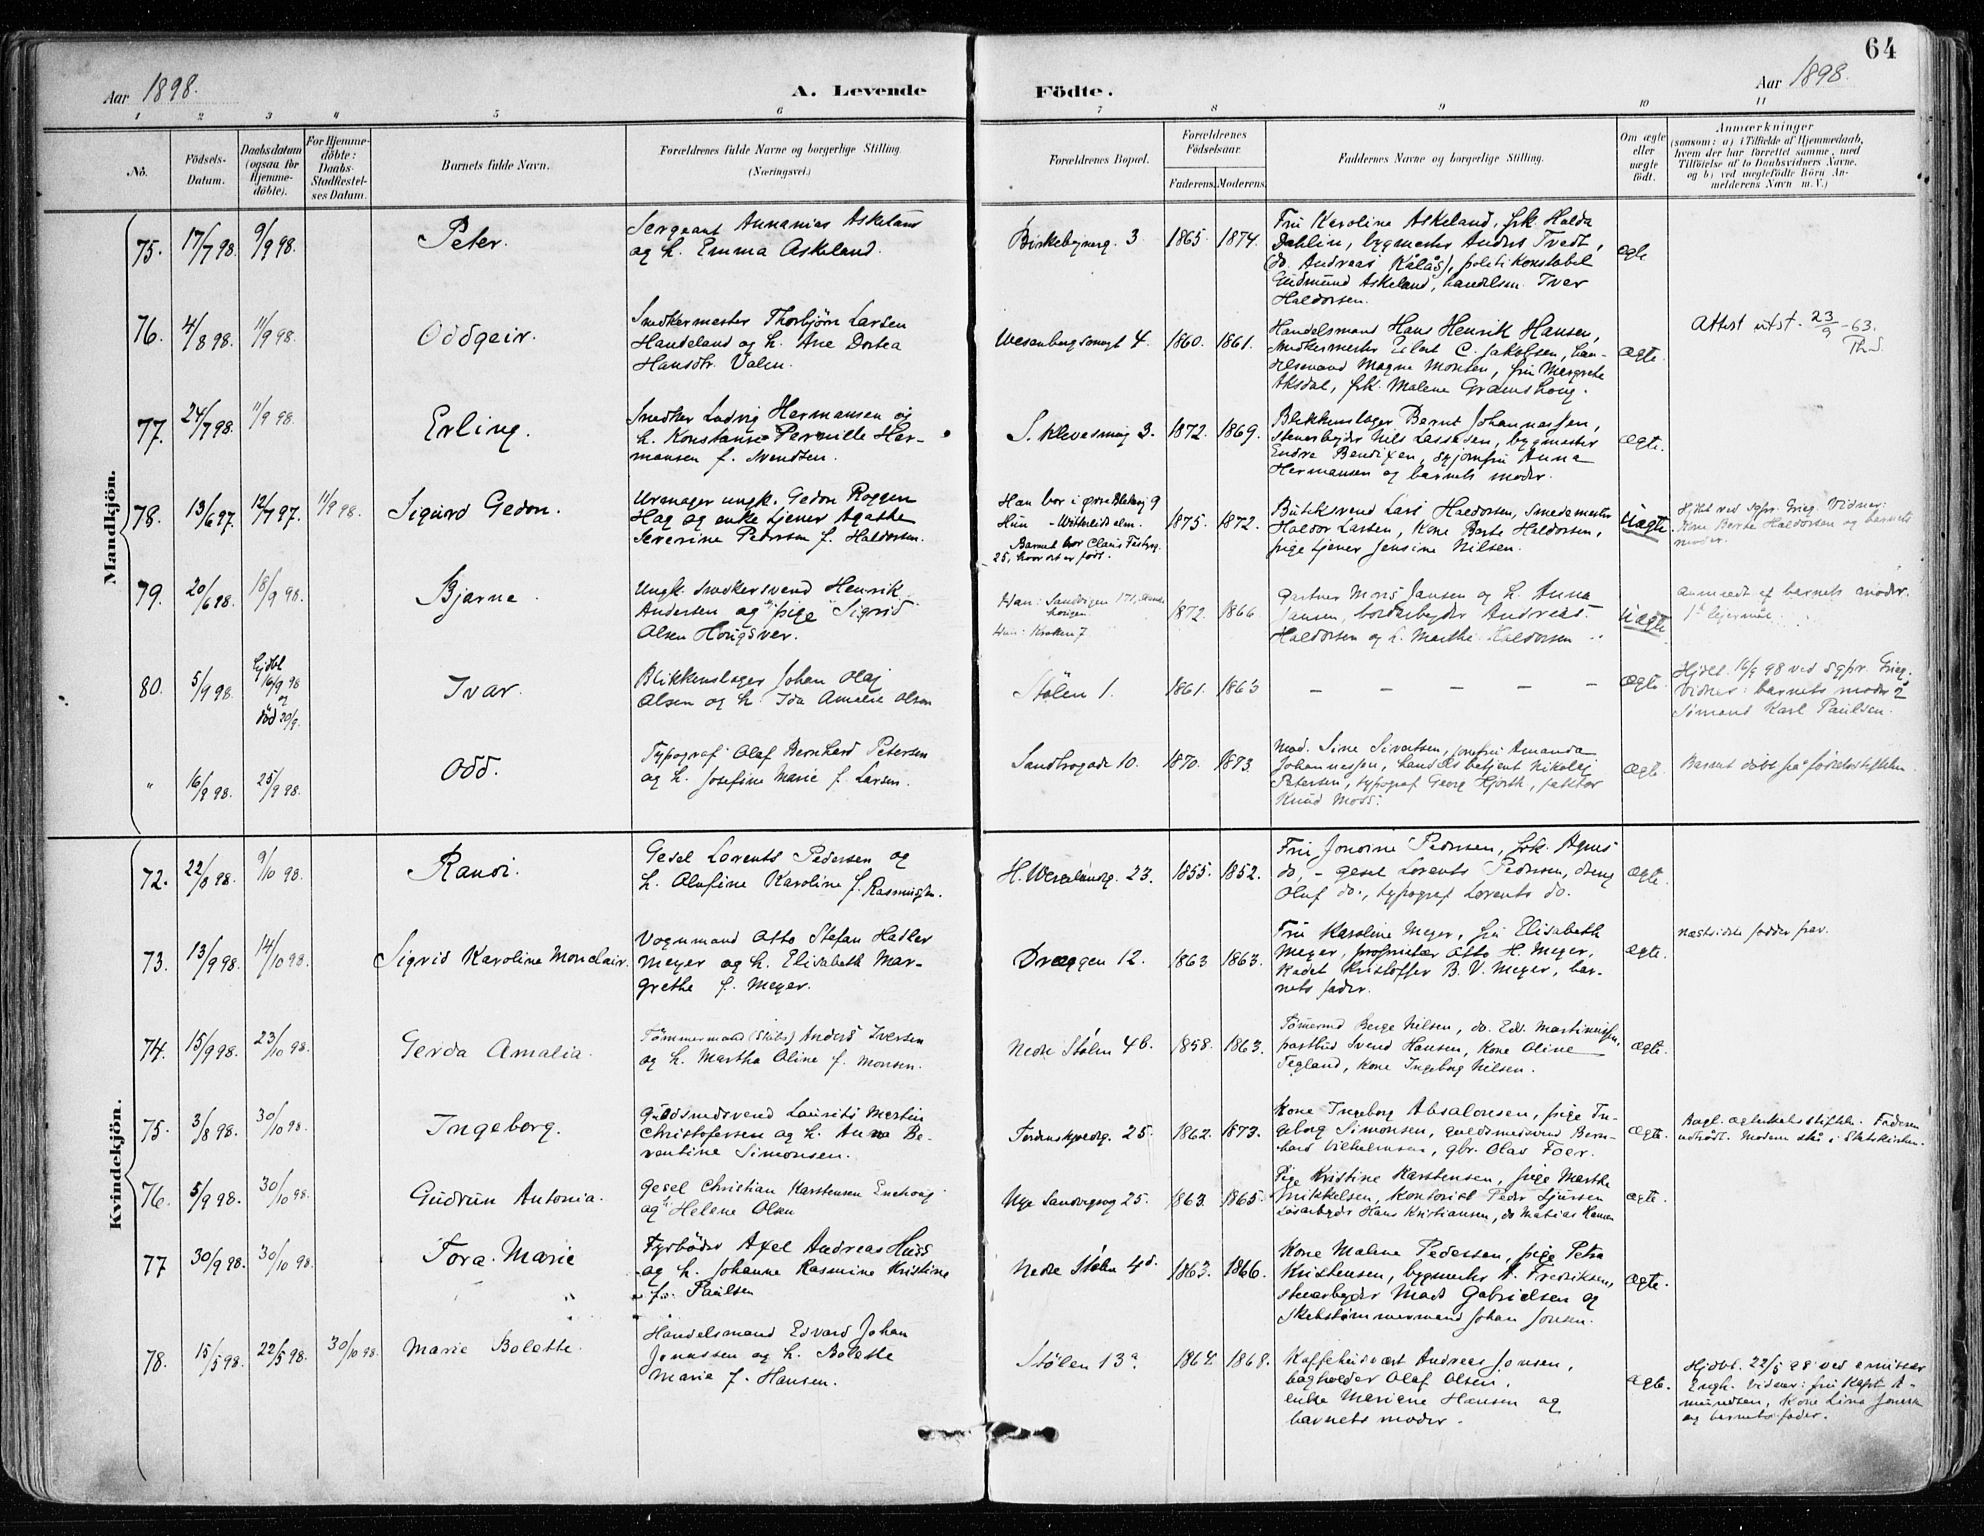 64
Aar 1898.
A. Levende Födte.
Aar 1898.
1 2 3 4 5 6 7 8 9 10 11
No.
Födsels-Datum.
Daabsdatum (ogsaa for Hjemme-döbte).
For Hjemme-döbte: Daabs-Stadfæstel-ses Datum.
Barnets fulde Navn.
Forældrenes fulde Navne og borgerlige Stilling.
(Næringsvei.)
Forældrenes Bopæl.
Forældrenes Födselsaar.
Faderens.
Moderens.
Faddernes Navne og borgerlige Stilling.
Om ægte eller uægte födt.
Anmærkninger
(saasom: a) i Tilfælde af Hjemmedaab,
hvem der har forrettet samme, med
Tilföielse af to Daabsvidners Navne,
og b) ved uegtefödte Börn An-
melderens Navn m. V.)
Mandkjön.
75. 17/7 98. 9/9 98. Peter.
Sergeant Annanias Askeland
og h. Emma Askeland.
Birkebejnerg. 3 1865. 1874.
Fru Karoline Askeland, frk. Halda
Dahlin, bygmester Anders Tvedt,
(do. Andreas Kålås), politikonstabel
Gudmund Askeland, handelsm. Ivar
Haldorsen.
ægte
76. 4/8 98. 11/9 98. Oddgeir.
Snedkermester Thorbjørn Larsen
Handeland og h. Ane Dortea
Hansdtr. Valen.
Wesenbergsmugt 4. 1860. 1861.
Handelsmand Hans Henrik Hansen,
snedkermester Eilert C. Jakobsen, han-
delsmand Magne Monsen, fru Margrete
Aksdal, frk. Malene
ægte.
Attest utst. 23/9 -63.
77. 24/7 98. 11/9 98. Erling.
Snedker Ludvig Hermansen og
h. Konstanse Pernille Her-
mansen f. Svendsen.
S. Klevesmug 3. 1872. 1869.
Blikkenslager Bernt Johannessen,
stenarbejder Nils Lassesen, bygmester
Endre Bendixen, Anna
Hermansen og barnets moder.
ægte.
78. 13/6 97. 12/7 97. 11/9 98. Sigurd Gedon.
Urmager ungk. Gedon Roggen
Hag og enke tjener Agathe
Severine Pedersen f. Haldorsen.
Han bor i Øvre Blekevej 9
Hun
Barnet bor Claus
25, hvor det er født.
1875. 1872.
Butiksvend Lars Haldorsen, smedemester
Haldor Larsen, kone Berte Haldorsen,
pige tjener Jensine Nilsen.
uægte
Hjdbt ved sgpr. Grieg. Vidner:
Kone Berte Haldorsen og barnets
moder.
79. 20/6 98. 18/9 98. Bjarne
Ungk. snedkersvend Henrik
Andersen og pige Sigrid
Olsen Hougsver.
Han: Sandvigen
Hun: Kroken 7
1872. 1866
Gartner Mons Jansen og h. Anna
Jansen, jordarbejder Andreas
Haldorsen og h. Marthe Haldorsen
uægte
anmeldt af barnets moder.
1ste lejermål.
80. 5/9 98. hjdbt 16/9 98 og død 20/9. Ivar.
Blikkenslager Johan Olaj
Olsen og h. Ida Amalie Olsen
Stølen 1. 1861. 1863
– – – – – –
ægte.
Hjdbt. 16/9 98 ved sgpr. Grieg.
Vidner: barnets moder &
Sømand Karl Paulsen.
" 16/9 98. 25/9 98. Odd.
Typograf Olaf Bernhard Petersen
og h. Josefine Marie f. Larsen.
Sandbrogade 10. 1870. 1873.
Mad. Sine Sivertsen, jomfru Amanda
Johannessen, handelsbetjent Nikolaj
Petersen, typograf Georg Hjorth, faktor
Knud Moss.
ægte.
Barnet døbt på fødselsstiftelsen.
Kvindekjön.
72. 22/8 98. 9/10 98. Randi.
Gesel Lorents Pedersen og
h. Olufine Karoline f. Rasmussen.
H. Wesselundg. 23. 1855. 1852.
Fru Jensine Pedersen, frk. Agnes
do, - gesel Lorents Pedersen, dreng
Oluf do., typograf Lorents do.
ægte.
73. 13/9 98. 14/10 98. Sigrid Karoline Monclair.
Vognmand Otto Stefan Hadler
Meyer og h. Elisabeth Mar-
grethe f. Meyer.
Dræggen 12. 1863 1863.
Fru Karoline Meyer, fru Elisabeth
Meyer, proprietær Otto H. Meyer,
Kadet Kristoffer B. V. Meyer, bar-
nets fader.
ægte.
næstsidste fadder frav.
74. 15/9 98. 23/10 98. Gerda Amalia.
Tømmermand (Skibs) Anders Iversen
og h. Martha Oline f. Monsen.
Nedre Stølen 4b. 1858. 1863.
Tømmermd Berge Nilsen, do. Edv. Martinussen,
postbud Svend Hansen, kone Oline
Tegland, kone Ingeborg Nilsen.
ægte.
75. 3/8 98. 30/10 98. Ingeborg.
Guldsmedsvend Laurits Martin
Christofersen og h. Anna Be-
rentine Simonsen.
Tordenskjoldsg. 25. 1862. 1873.
Kone Ingeborg Absalonsen, pige In-
geborg Simonsen, guldsmedsvend Bern-
hard Vilhelmsen, gbr. Olav Foer.
ægte.
Borgl. ægteskabsstiftelse. Faderen
udtrådt. Moderen stå i Statskirken.
76. 5/9 98. 30/10 98. Gudrun Antonia.
Gesel Christian Karstensen Enehoug
og h. Helene Olsen
Nye Sandvigsvej 25. 1863. 1865.
Pige Kristine Karstensen, pige Marthe
Mikkelsen, kontorist Peder Sjursen
Løsarbejder Hans Kristiansen, do Mathias Hansen
ægte.
77 30/9 98. 30/10 98. Tora Marie
Fyrbøder Axel Andreas Huss
og h. Johanne Rasmine Kristine
f. Paulsen
Nedre Stølen 4d. 1863. 1866.
Kone Malene Pedersen, pige Petra
Kristensen, bygmester A. Fredriksen,
stenarbejder Mads Gabrielsen og
Skibstømmermand Johan Jonsen.
ægte.
78. 15/5 98. 22/5 98. 30/10 98. Marie Bolette.
Handelsmand Edvard Johan
Jonassen og h. Bolette
Marie f. Hansen.
Stølen 13a. 1864. 1868.
Kaffehusvært Andreas Jonsen,
bogholder Olaf Olsen,
enke Mariene Hansen og
barnets moder.
ægte.
Hjdbt. 22/5 98 ved emissær
Engh. Vidner: fru Kapt. A-
mundsen, kone Lina Jonsen
og barnets fader.